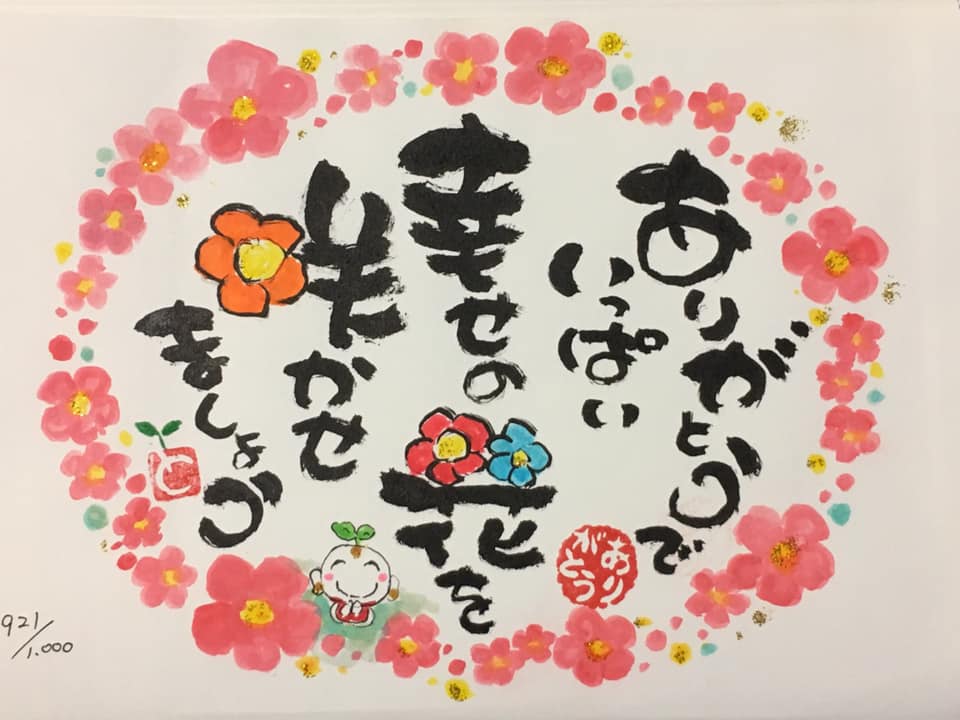 ありがとうで
いっぱい
幸せの
花を
咲かせ
ましょう
ありがとう
と
921/1.000